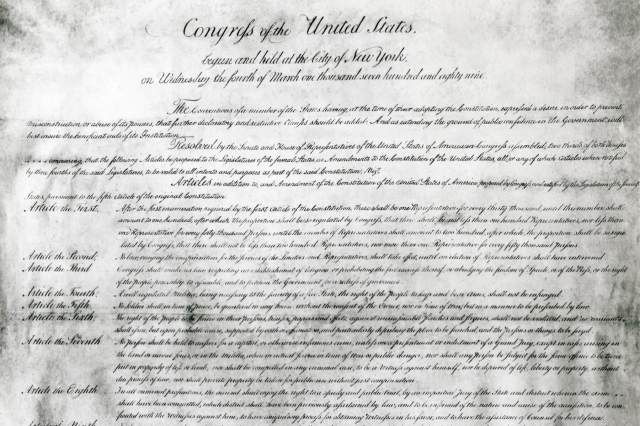 Congress of the United States,
begun and held at the City of New York, on
on Wednesday the fourth of March one thousand seven hundred and eighty nine
The Conventions of a number of the States having, at the time of their adopting the Constitution, expressed a desire, in order to prevent
misconstruction or abuse of its powers, that further declaratory and restrictive clauses should be added: And as extending the ground of public confidence in the Government will
best ensure the beneficent ends of its Institution
Resolved by the Senate and House of Representatives of the United States of America in Congress assembled, two thirds of both Houses
concurring that the following Articles be proposed to the Legislatures of the several States as Amendments to the Constitution of the United States, all or any of which articles when ratified
by three fourths of the said Legislatures, to be valid to all intents and purposes as part of the said Constitution; Viz.
Articles in addition to, and Amendment of the Constitution of the United States of America, proposed by Congress and ratified by the Legislatures of the several
States, pursuant to the fifth Article of the original Constitution.
Article the First, After the first enumeration required by the first Article of the Constitution, there shall be one Representative for every thirty thousand until the number shall
amount to one hundred, after which, the proportion shall be so regulated by Congress, that there shall be not less than one hundred Representatives, nor less than
one Representative for every forty thousand persons, until the number of Representatives shall amount to two hundred after which the proportion shall be so regu
lated by Congress, that there shall not be less than two hundred Representatives, nor more than one Representative for every fifty thousand persons.
Article the Second, No law varying the compensation for the services of the Senators and Representatives, shall take effect, until an election of Representatives shall have intervened.
Article the Third Congress shall make no law respecting an establishment of religion or prohibiting the free exercise thereof; or abridging the freedom of Speech, or of the Press, or the right
of the People peaceably to assemble, and to petition the Government for a redress of grievances
Article the Fourth, A well regulated Militia, being necessary to the security of a free State, the right of the People to keep and bear Arms, shall not be infringed.
Article the Fifth No Soldier shall in time of Peace, be quartered in any house without the consent of the Owner, nor in time of war, but in a manner to be prescribed by law.
Article the Sixth The right of the People to be secure in their persons, houses, papers and effects, against unreasonable searches and seizures, shall not be violated, and no warrants
shall issue, but upon probable cause, supported by oath or affirmation, and particularly describing the place to be searched, and the persons or things to be seized.
Article the Seventh No person shall be held to answer for a capital, or otherwise infamous crime, unless on a presentment or indictment of a Grand Jury, except in cases arising in
the land or naval forces, or in the Militia, when in actual service in time of war or public danger; nor shall any person be subject for the same offence to be twice
put in jeopardy of life or limb, nor shall be compelled in any criminal case, to be a witness against himself, nor be deprived of life, liberty or property, without
due process of law; nor shall private property be taken for public use without just compensation.
Article the Eighth In all criminal prosecutions, the accused shall enjoy the right to a speedy and public trial, by an impartial Jury of the State and district wherein the crime
shall have been committed, which district shall have been previously ascertained by law, and to be informed of the nature and cause of the accusation; to be con
fronted with the witnesses against him, to have compulsory process for obtaining Witnesses in his favor, and to have the assistance of Counsel for his defence.